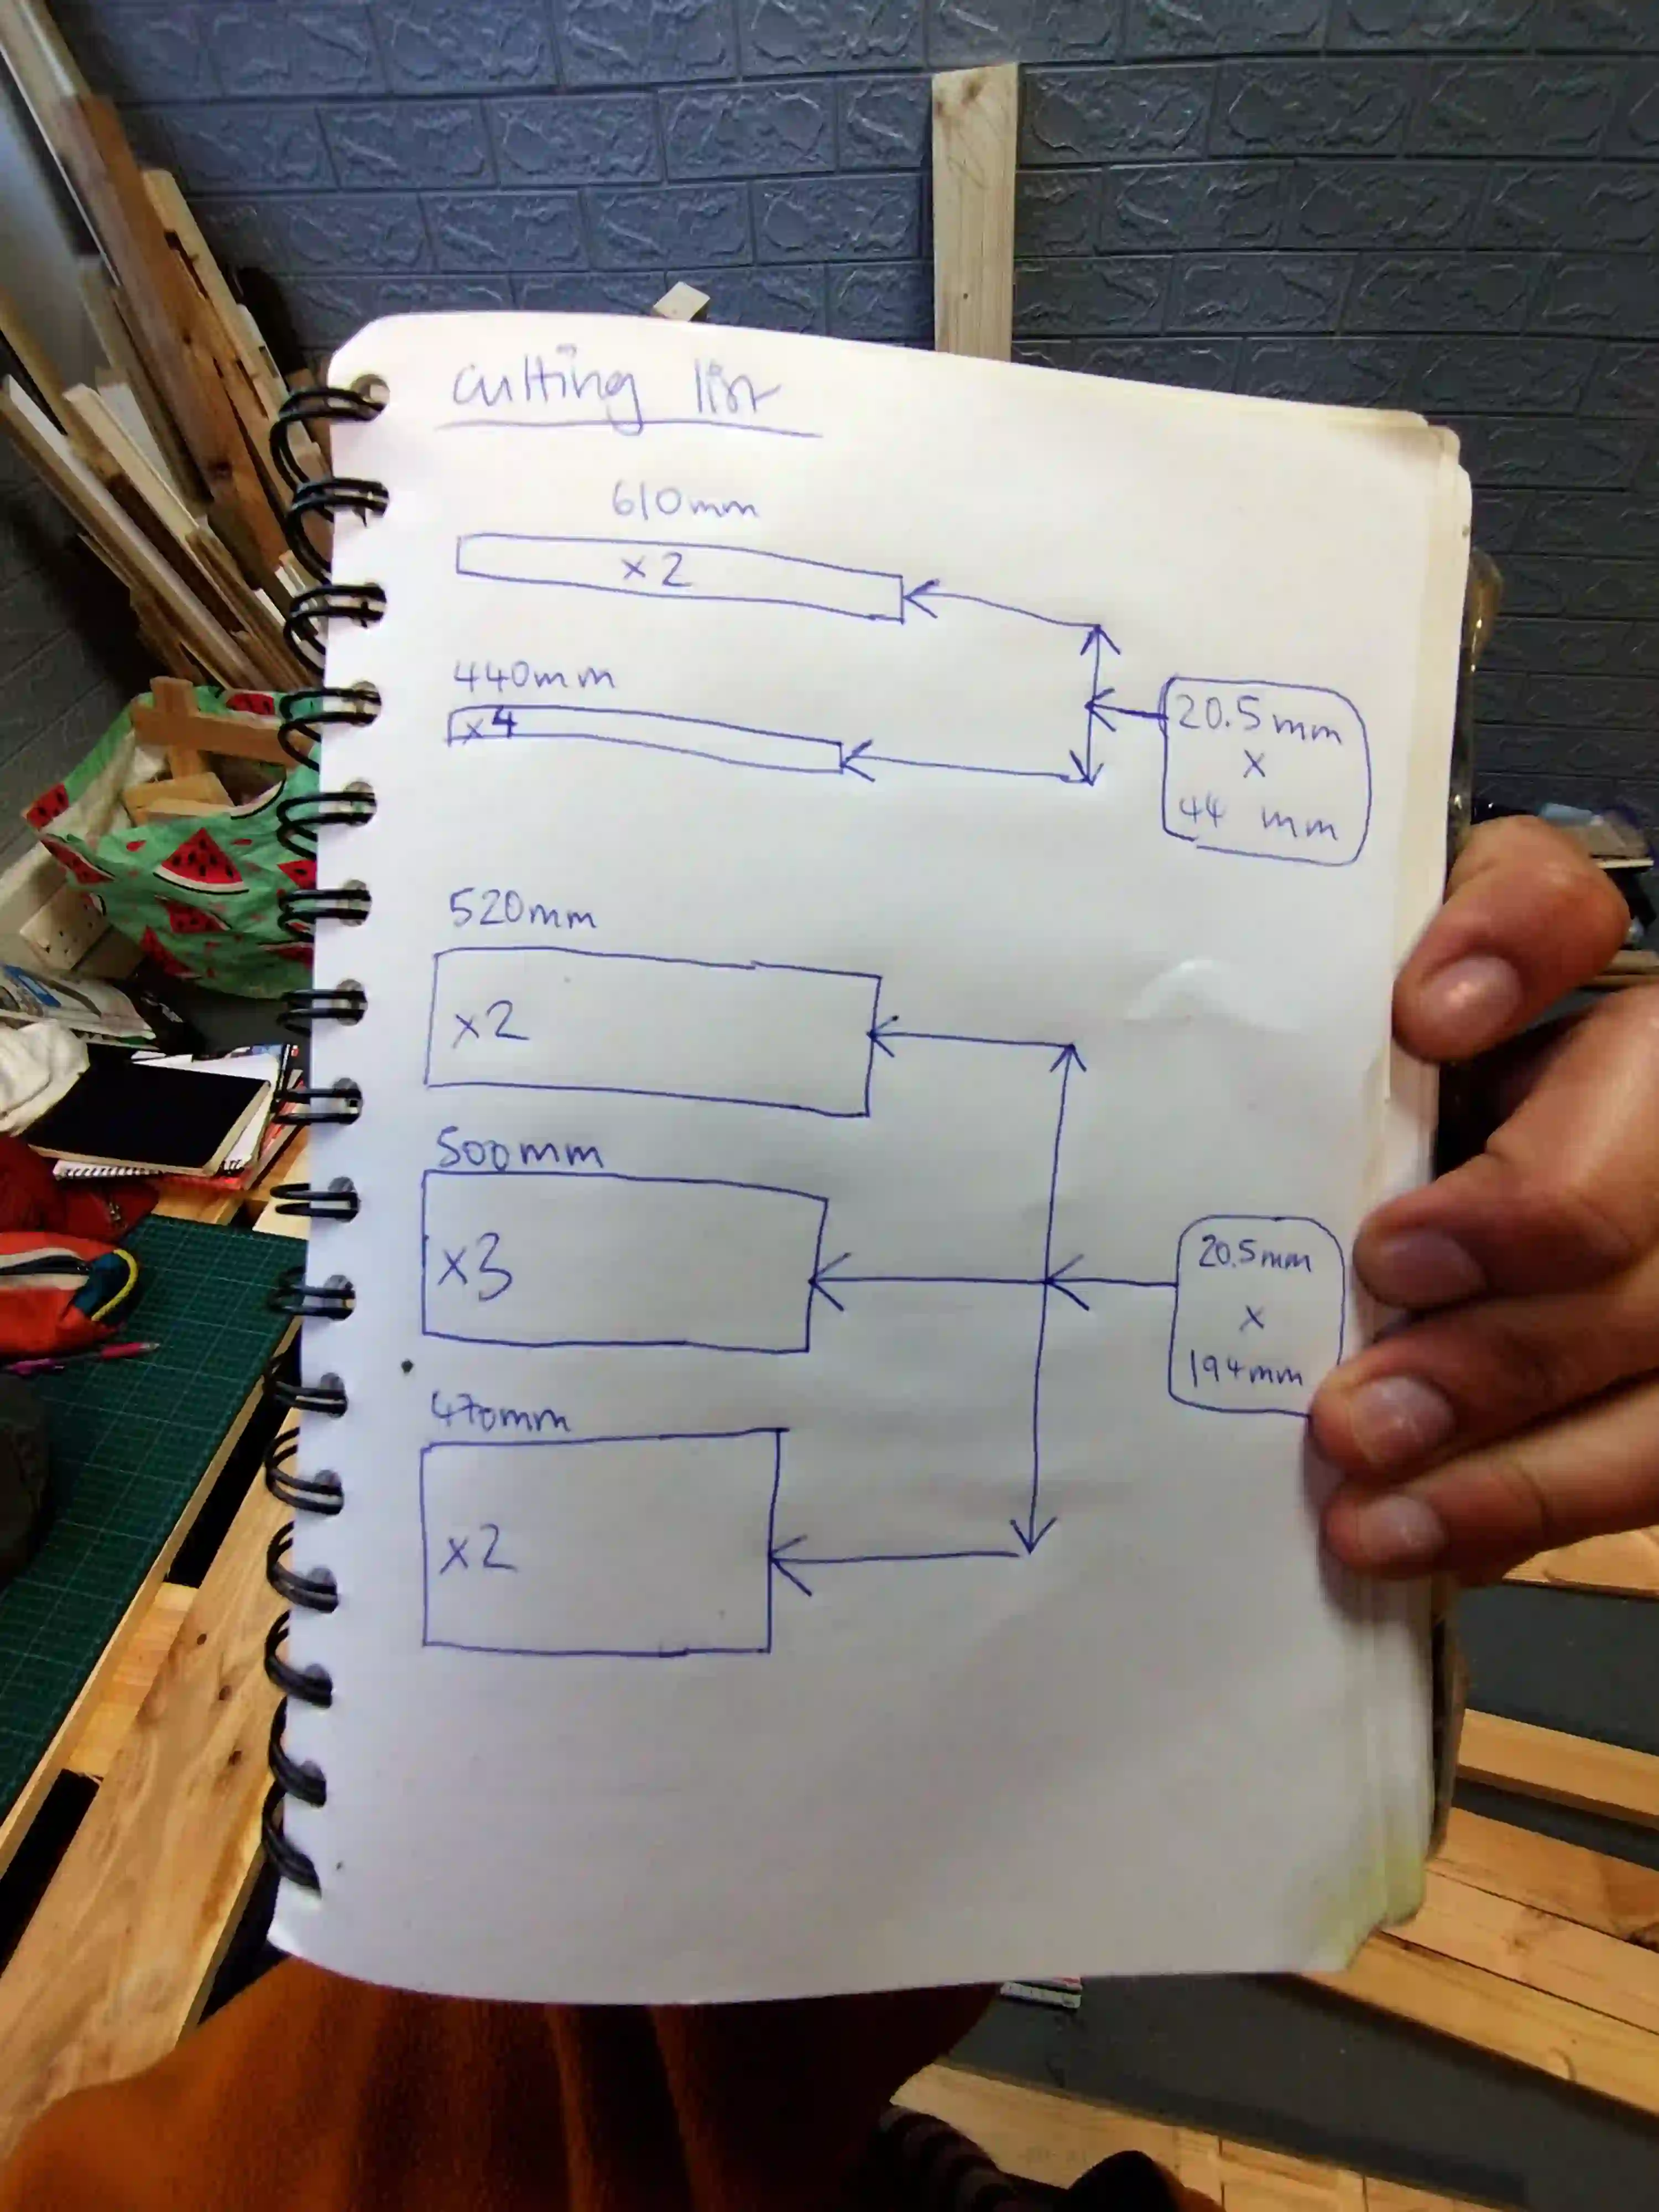 cutting list
610mm
x2
440mm
x4
20.5mm
x
44 mm
520mm
x2
500mm
x3
20.5mm
x
194mm
470mm
x2